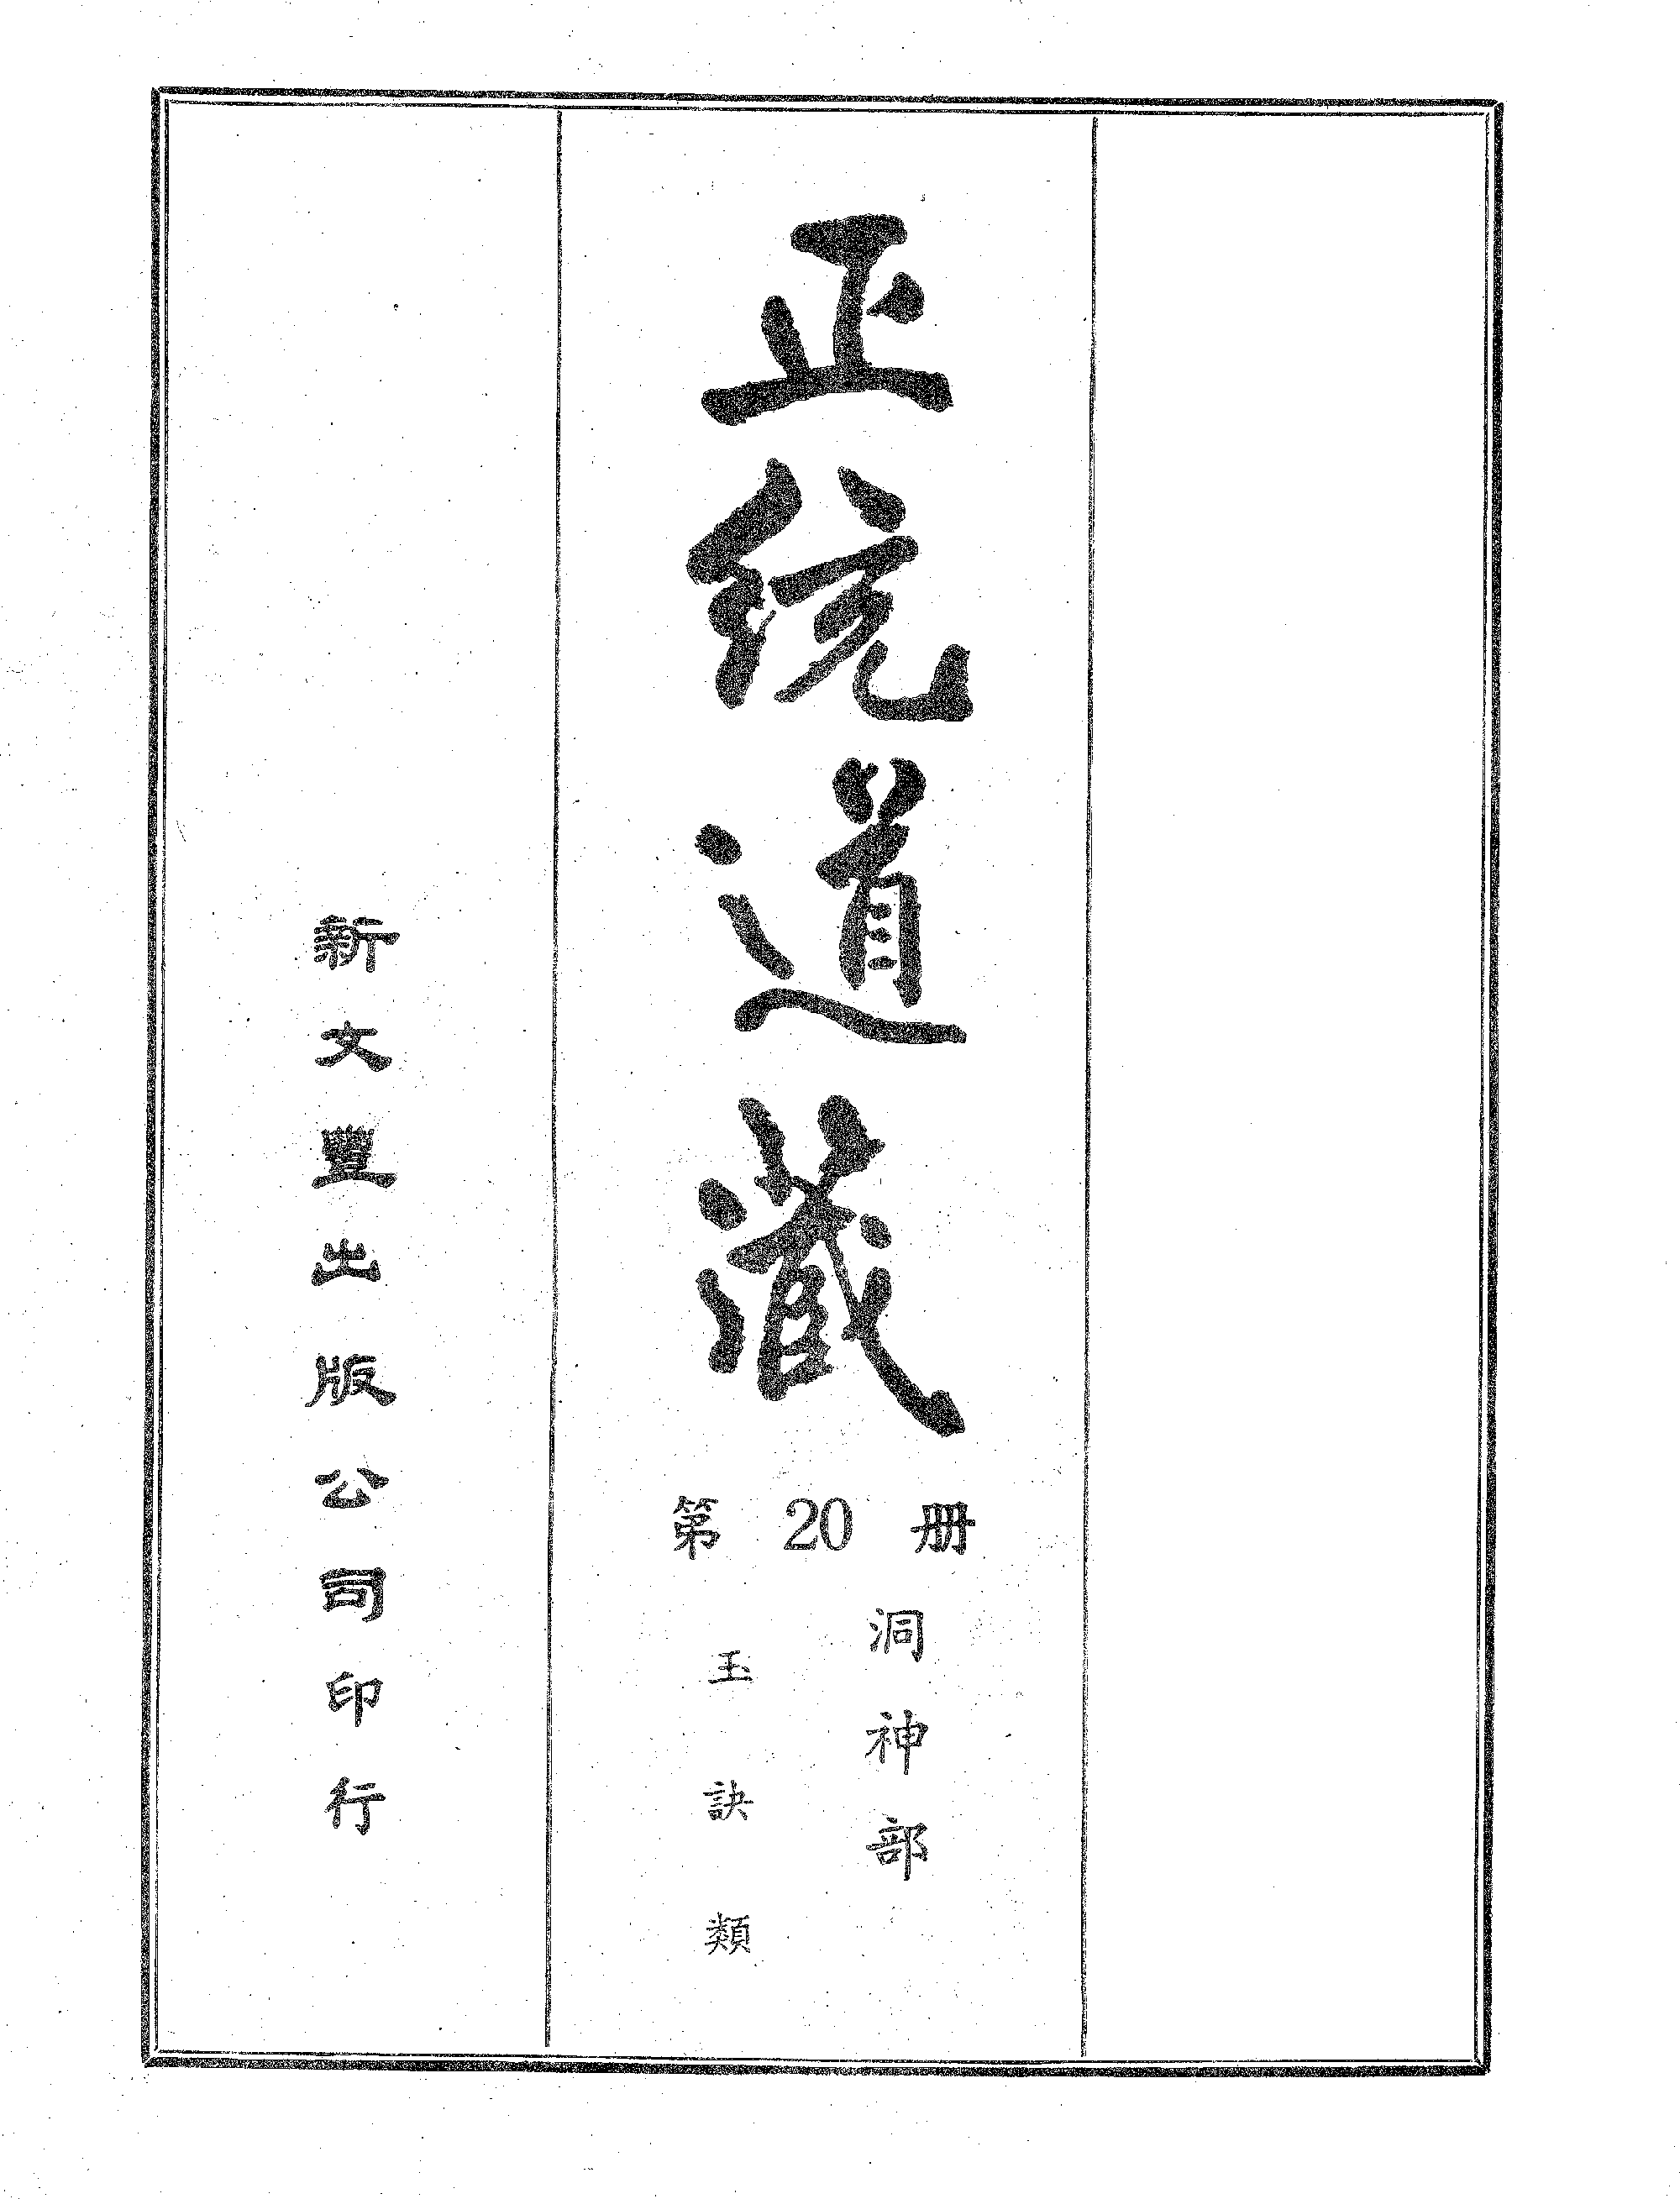 正統道藏
第20册
洞神部
玉訣類
新文豐出版公司印行